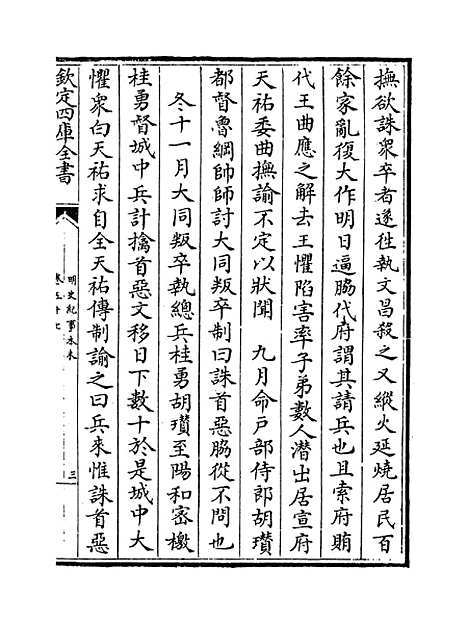 撫欲誅衆卒者遂徃執文昌殺之又縱火延燒居民百
餘家亂復大作明日逼脇代府謂其請兵也且索府賄
代王曲應之解去王懼陷害率子弟數人潛出居宣府
天祐委曲撫諭不定以狀聞　九月命戶部侍郎胡瓚
都督魯綱帥師討大同叛卒制曰誅首惡脇從不問也
冬十一月大同叛卒執總兵桂勇胡瓚至陽和宻檄
桂勇督城中兵計擒首惡文移日下數十於是城中大
懼衆向天祐求自全天祐傳制諭之曰兵來惟誅首惡
欽定四庫全書
明史紀事本末
卷五十七
三